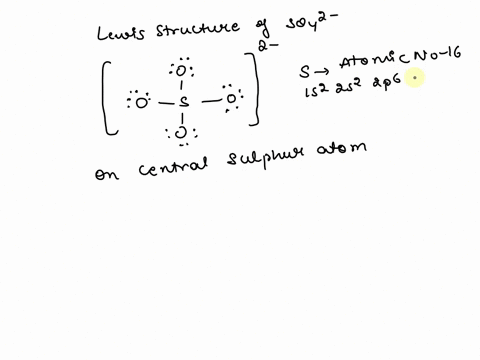 Lewis Structure of SO₄²⁻
2-
:Ö:
:Ö—S—Ö:
:O:
S → Atomic No-16
1s² 2s² 2p⁶
on central sulphur atom